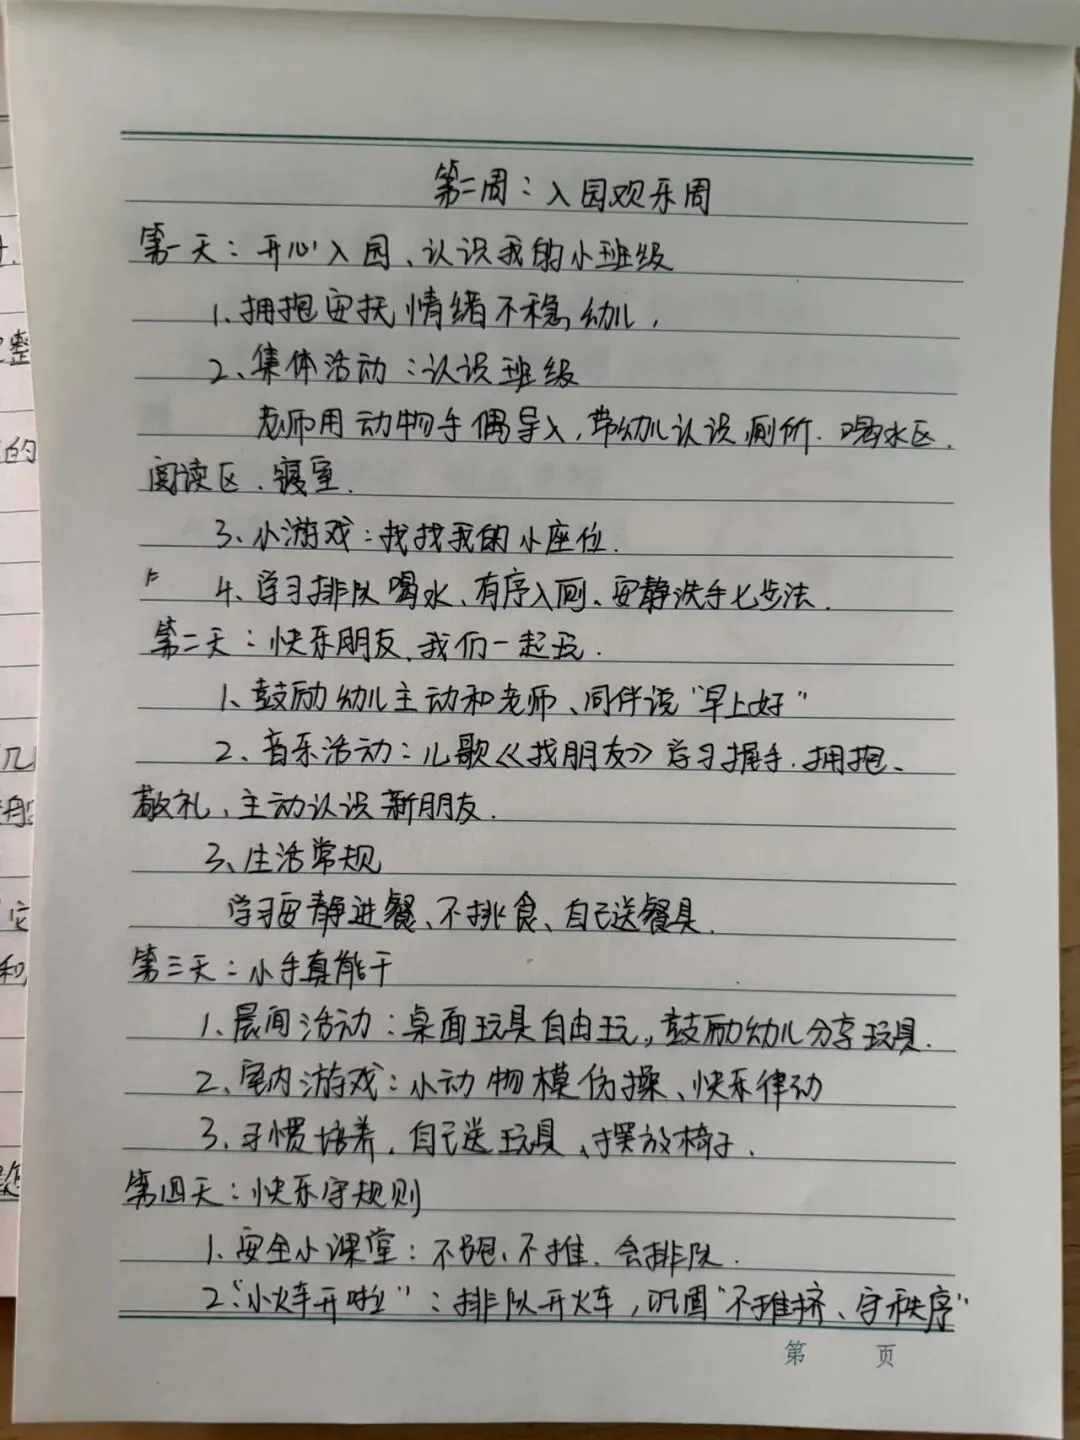 第二周：入园欢乐周
第一天：开心入园、认识我的小班级
1、拥抱安抚情绪不稳幼儿，
2、集体活动：认识班级
老师用动物手偶导入，带幼儿认识厕所、喝水区、
阅读区、寝室.
3、小游戏：找找我的小座位.
4、学习排队喝水、有序入厕、安静洗手七步法.
第二天：快乐朋友、我们一起玩.
1、鼓励幼儿主动和老师、同伴说“早上好”
2、音乐活动：儿歌《找朋友》学习握手、拥抱、
敬礼，主动认识新朋友.
3、生活常规
学习安静进餐、不挑食、自己送餐具.
第三天：小手真能干
1、晨间活动：桌面玩具自由玩，鼓励幼儿分享玩具.
2、室内游戏：小动物模仿操、快乐律动
3、习惯培养，自己送玩具、摆放椅子.
第四天：快乐守规则
1、安全小课堂：不跑、不推、会排队.
2、“小火车开啦”：排队开火车，巩固“不推挤、守秩序”
第 页
整
的
几
和